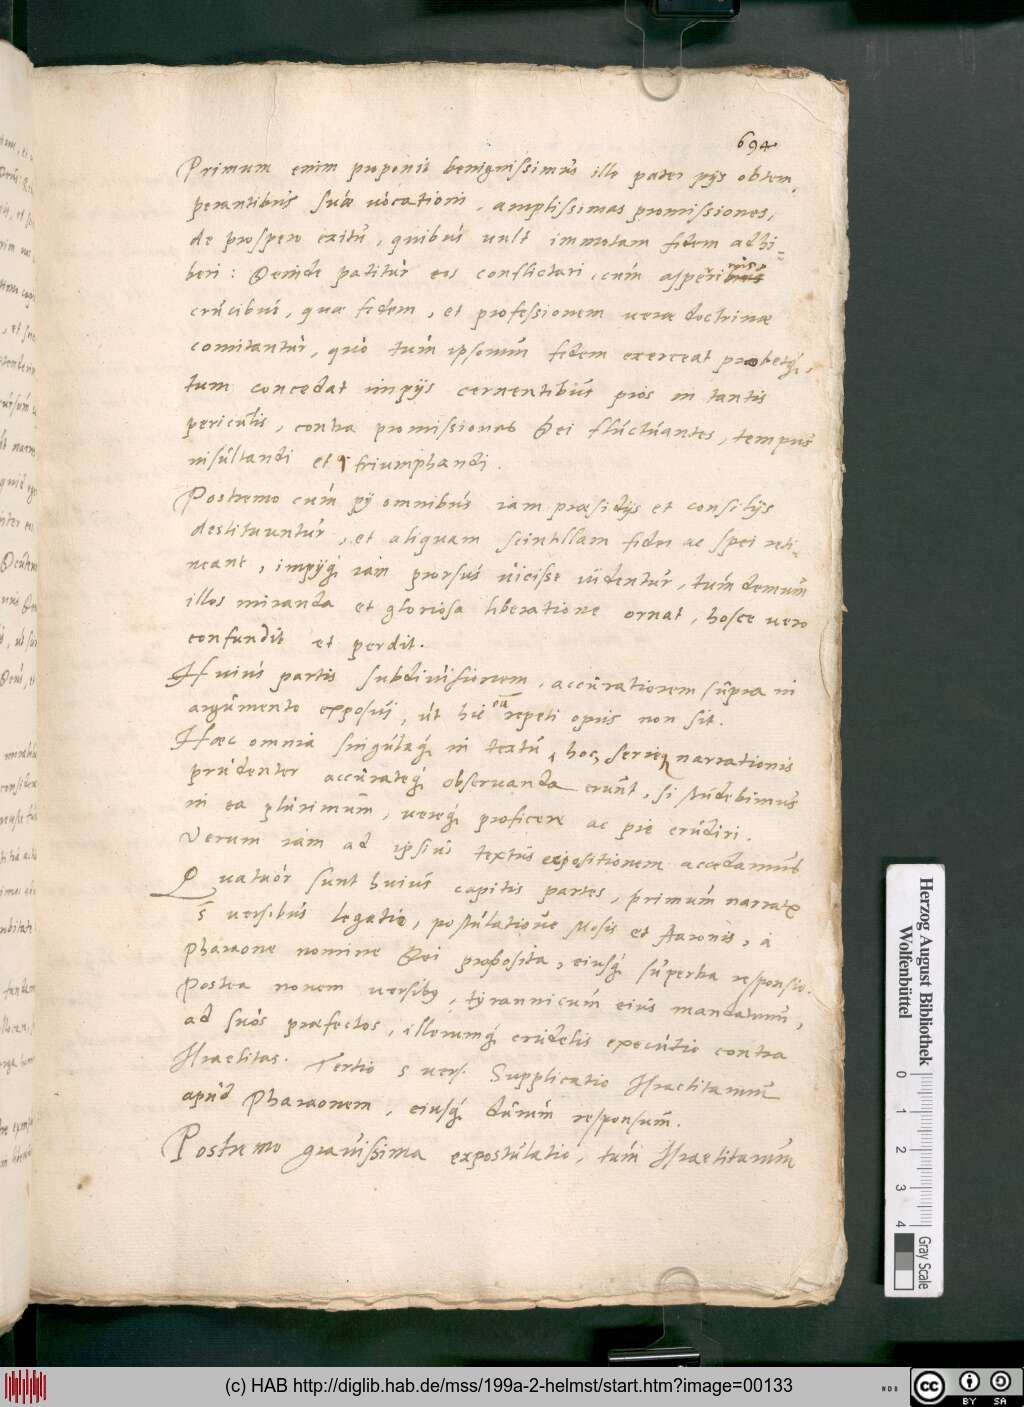 694
Primum enim proponit benignissimus ille pater pijs obtem,
perantibus suae vocationi, amplissimas promissiones,
de prospero exitu, quibus vult immotam fidem adhi=
beri: Deinde patitur eos conflictari, cum asperri
crucibus, quae fidem, et professionem verae doctrinae
comitantur, quo tum ipsorum fidem exerceat probetq́,
tum concedat impijs cernentibus pios in tantis
periculis, contra promissiones Dei fluctuantes, tempus
insultandi et triumphandi.
Postremo cum pij omnibus iam praesidijs et consilijs
destituuntur, et aliquam scintillam fidei ac spei reti=
neant, impijq́ iam prorsus vicisse videntur, tum demum
illos miranda et gloriosa liberatione ornat, hosce vero
confundit et perdit.
Huius partis subdivisionem, accuratiorem supra in
argumento exposui, ut hic ea repeti opus non sit.
Haec omnia singulaq́ in textu, hoc serie narrationis
prudenter accurateq́ observanda erunt, si studebimus
in ea plurimum, vereq́ proficere ac pie erudiri.
Verum iam ad ipsius textus expositionem accedamus
Quatuor sunt huius capitis partes, primum narratr
5 versibus legatio, postulatione Mosis et Aaronis, a
Pharaone nomine Dei proposita, eiusq́ superba responsio.
Postea novem versibus, tyrannicum eius mandatum,
ad suos praefectos, illorumq́ crudelis executio contra
Israelitas. Tertio 5 vers. Supplicatio Israelitarum
apud Pharaonem, eiusq́ durum responsum.
Postremo gravissima expostulatio, tum Israelitarum
Herzog August Bibliothek
Wolfenbüttel
0 1 2 3 4
Gray Scale
(c) HAB http://diglib.hab.de/mss/199a-2-helmst/start.htm?image=00133
cc BY SA